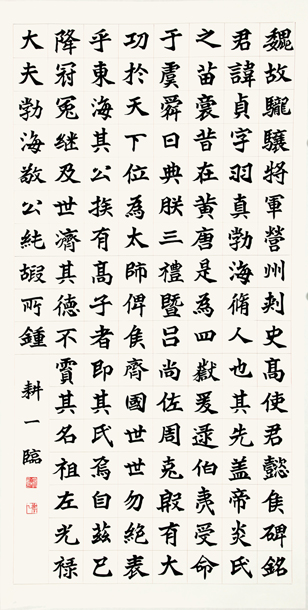 魏故驪驤將軍營州刾史髙使君懿侯碑銘
君諱貞字羽真勃海脩人也其先盖帝炎氏
之苗裔昔在黄唐是為四嶽爰逯伯夷受命
于虞舜曰典朕三禮暨吕尚佐周克殷有大
功於天下位為太師俾侯齊國世世勿絶表
乎東海其公族有髙子者即其氏焉自兹已
降冠冕継及世濟其德不賈其名祖左光禄
大夫勃海敬公純嘏所鍾
耕一臨